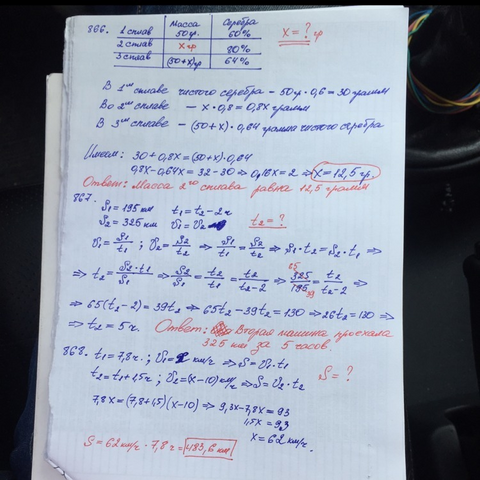 866.
Масса Серебра
1 сплав 50гр. 60%
2 сплав x гр 80%
3 сплав (50+x)гр 64%
x = ? гр
В 1ом сплаве чистого серебра – 50гр · 0,6 = 30 грамм
Во 2ом сплаве – x · 0,8 = 0,8x грамм
В 3ем сплаве – (50+x) · 0,64 грамма чистого серебра
Имеем: 30 + 0,8x = (50+x) · 0,64
0,8x – 0,64x = 32 – 30 ⇒ 0,16x = 2 ⇒ x = 12,5 гр.
Ответ: Масса 2го сплава равна 12,5 грамм
867.
S₁ = 195 км t₁ = t₂ – 2ч
S₂ = 325 км V₁ = V₂ t₂ = ?
V₁ = S₁/t₁ ; V₂ = S₂/t₂ ⇒ S₁/t₁ = S₂/t₂ ⇒ S₁ · t₂ = S₂ · t₁ ⇒
⇒ t₂ = S₂·t₁/S₁ ⇒ S₂/S₁ = t₂/t₁ = t₂/t₂–2 ⇒ 65 325/195 39 = t₂/t₂–2 ⇒
⇒ 65(t₂ – 2) = 39t₂ ⇒ 65t₂ – 39t₂ = 130 ⇒ 26t₂ = 130 ⇒
⇒ t₂ = 5 ч. Ответ: Вторая машина проехала
325 км за 5 часов.
868. t₁ = 7,8ч. ; V₁ = x км/ч ⇒ S = V₁ · t₁
t₂ = t₁ + 1,5ч ; V₂ = (x–10) км/ч ⇒ S = V₂ · t₂ S = ?
7,8x = (7,8+1,5)(x–10) ⇒ 9,3x – 7,8x = 93
1,5x = 93
x = 62 км/ч.
S = 62 км/ч · 7,8 ч = 483,6 км